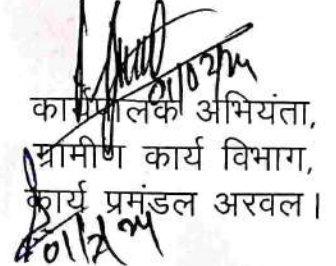 01/02/24
कार्यपालक अभियंता,
ग्रामीण कार्य विभाग,
कार्य प्रमंडल अरवल।
01/2/24